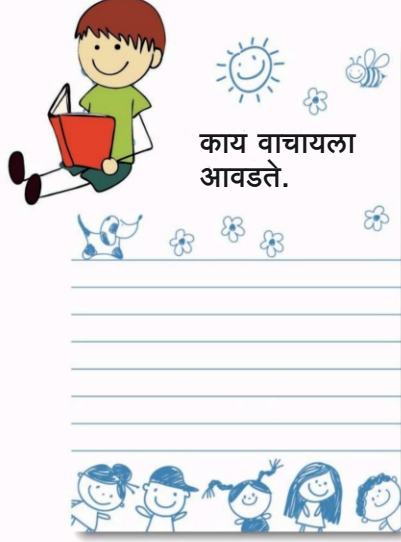 काय वाचायला
आवडते.